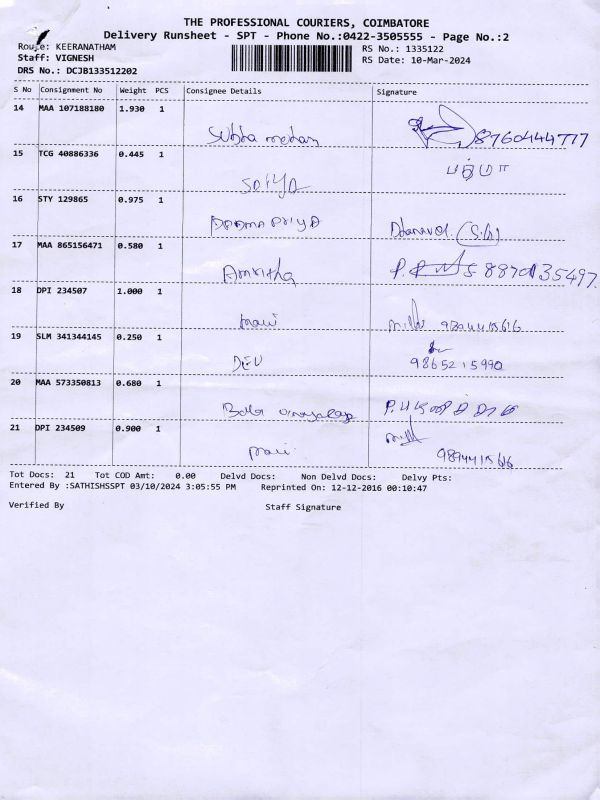 THE PROFESSIONAL COURIERS, COIMBATORE
Delivery Runsheet - SPT - Phone No.:0422-3505555 - Page No.:2
Route: KEERANATHAM RS No.: 1335122
Staff: VIGNESH RS Date: 10-Mar-2024
DRS No.: DCJB133512202
S No Consignment No Weight PCS Consignee Details Signature
14 MAA 107188180 1.930 1
Subha mohan 8760444777
15 TCG 40886336 0.445 1
பத்மா
16 STY 129865 0.975 1
PADMA PRIYA
17 MAA 865156471 0.580 1
Amritha
18 DPI 234507 1.000 1
mani
19 SLM 341344145 0.250 1
DEV 9865215990
20 MAA 573350813 0.680 1
21 DPI 234509 0.900 1
mani
Tot Docs: 21 Tot COD Amt: 0.00 Delvd Docs: Non Delvd Docs: Delvy Pts:
Entered By :SATHISHSSPT 03/10/2024 3:05:55 PM Reprinted On: 12-12-2016 00:10:47
Verified By Staff Signature